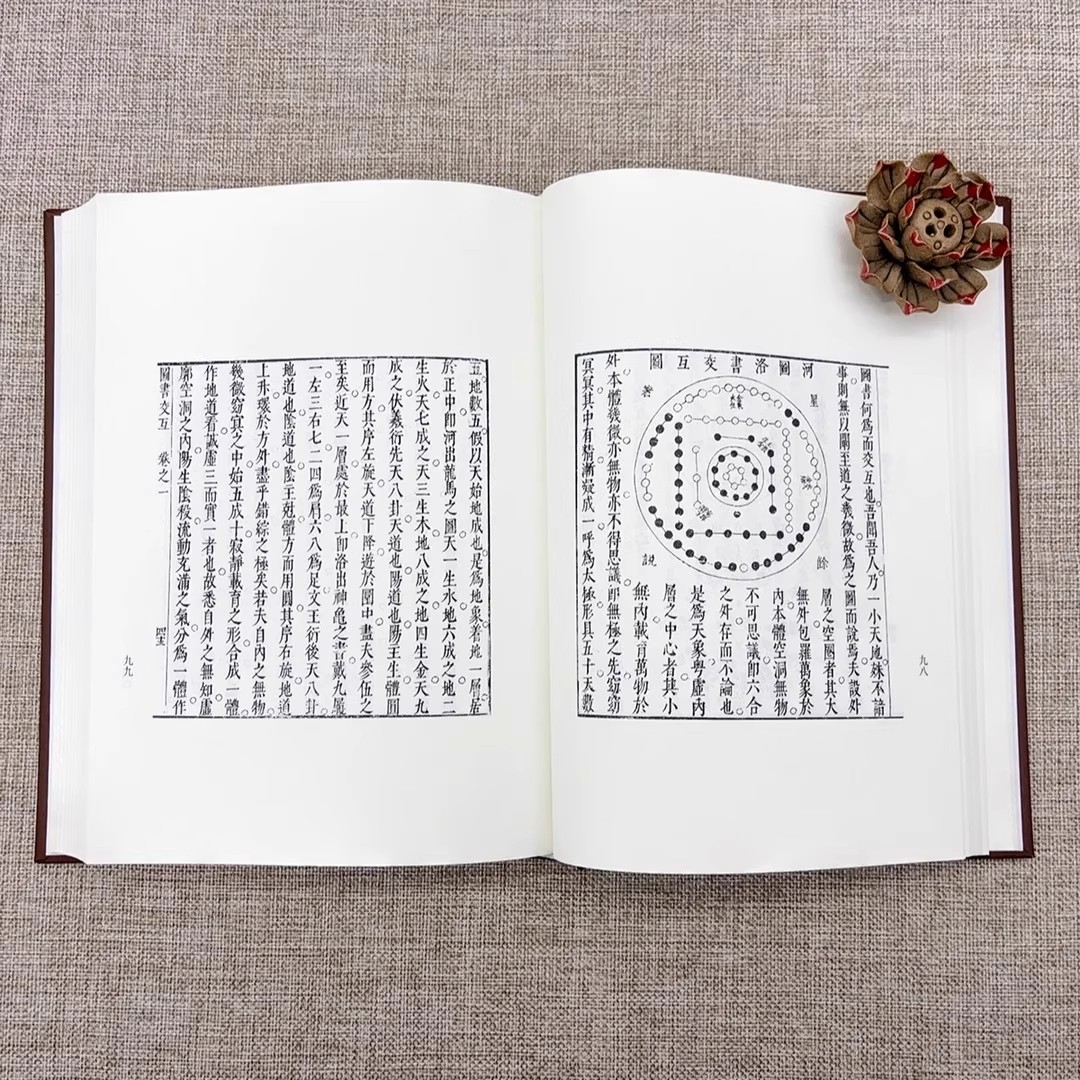 圖書何爲而交互也吾聞吾人乃一小天地殊不諳
事則無以闡至道之義微故爲之圖而說焉天設外
河圖洛書交互圖
星
餘
著
說
層之空圈者其大
無外包羅萬象於
內本體空洞無物
不可思議即六合
之外存而不論也
是爲天象粤虛內
層之中心者其小
無內載育萬物於
外本體幾微亦無物亦不得思議即無極之先窈窈
冥冥其中有精漸凝成一呼爲太極形具五十天數
九八
五地數五假以天始地成也是爲地象着地一層居
於正中卽河出龍馬之圖天一生水地六成之地二
生火天七成之天三生木地八成之地四生金天九
成之伏羲衍先天八卦天道也陽道也陽主生體圓
而用方其序左旋天道下降遊於圜中盡夫參伍之
至矣近天一層處於最上卽洛出神龜之書戴九履
一左三右七二四爲肩六八爲足文王衍後天八卦
地道也陰道也陰主尅體方而用圓其序右旋地道
上升環於方外盡乎錯綜之極矣若夫自內之無物
幾微窈冥之中始五成十寂靜載育之形合成一體
作地道看誠虛三而實一者也故悉自外之無知虛
廓空洞之內陽生陰殺流動充滿之氣分爲一體作
圖書交互 卷之一
九九